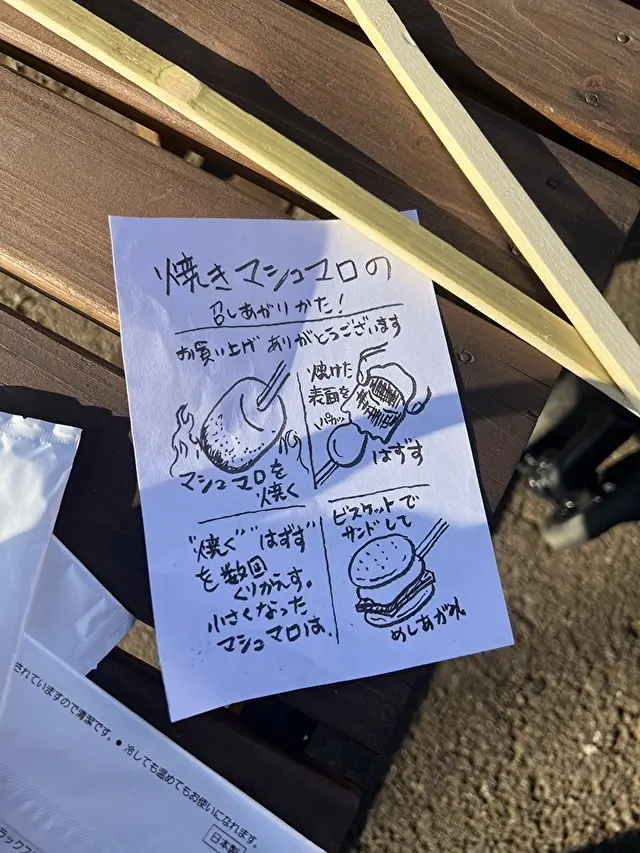 焼きマシュマロの
召しあがりかた!
お買い上げ ありがとうございます
マシュマロを
焼く
焼けた
表面を
パカッ
はずす
"焼く" "はずす"
を数回
くりかえす。
小さくなった
マシュマロは、
ビスケットで
サンドして
めしあがれ
されていますので清潔です。●冷しても温めてもお使いになれます。
日本製